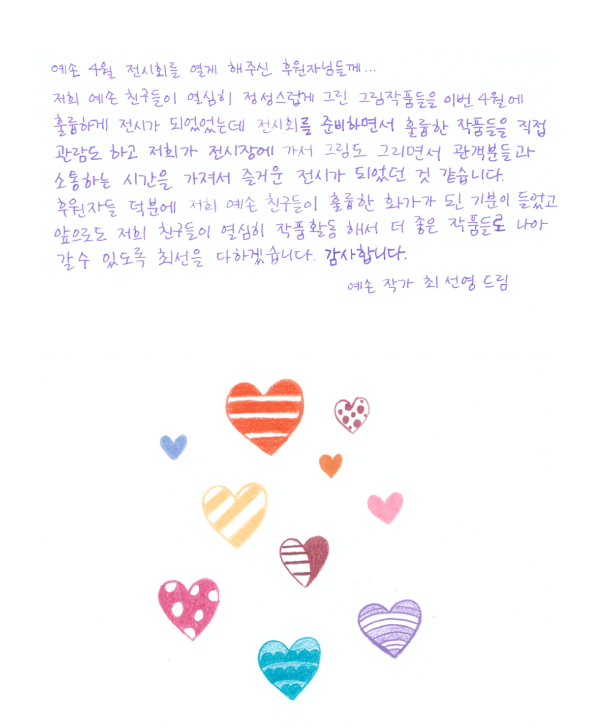 예손 4월 전시회를 열게 해주신 후원자님들께...
저희 예손 친구들이 열심히 정성스럽게 그린 그림작품들을 이번 4월에
훌륭하게 전시가 되었었는데 전시회를 준비하면서 훌륭한 작품들을 직접
관람도 하고 저희가 전시장에 가서 그림도 그리면서 관객분들과
소통하는 시간을 가져서 즐거운 전시가 되었던 것 같습니다.
후원자들 덕분에 저희 예손 친구들이 훌륭한 화가가 된 기분이 들었고
앞으로도 저희 친구들이 열심히 작품활동 해서 더 좋은 작품들로 나아
갈 수 있도록 최선을 다하겠습니다. 감사합니다.
예손 작가 최선영 드림